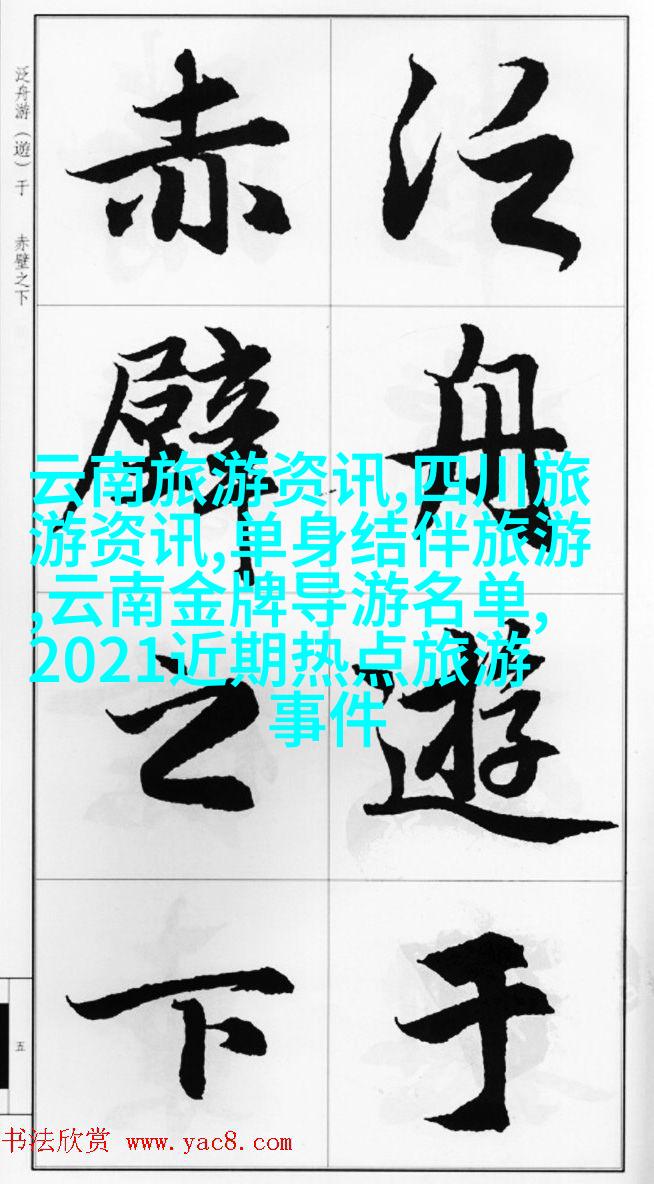 泛舟游（遊）于　赤壁之下
泛舟遊于
赤壁之下
云南旅游资讯,四川旅
游资讯,单身结伴旅游
,云南金牌导游名单,
2021近期热点旅游
事件
五
书法欣赏 www.yac8.com